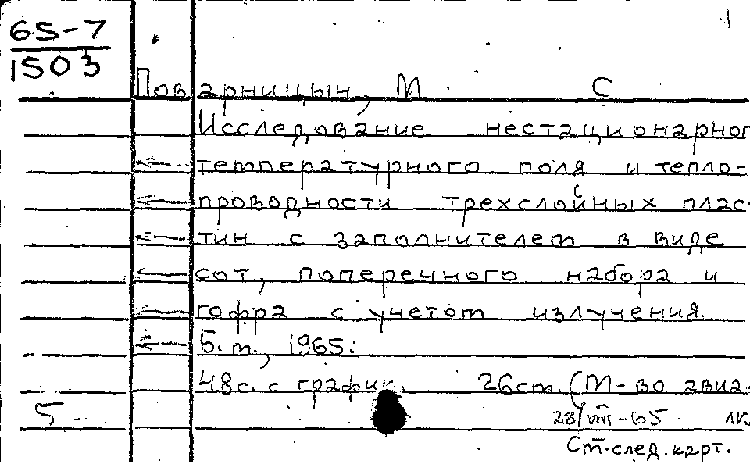 65-7
1503
1
Поварницын, М С
Исследование нестационарног
температурного поля и тепло-
проводности трехслойных плас-
тин с заполнителем в виде
сот, поперечного набора и
гофра с учетом излучения.
Б.м., 1965.
48с. с график. 26см. (М-во авиа-
5 28/VIII-65
Ст. след. карт.